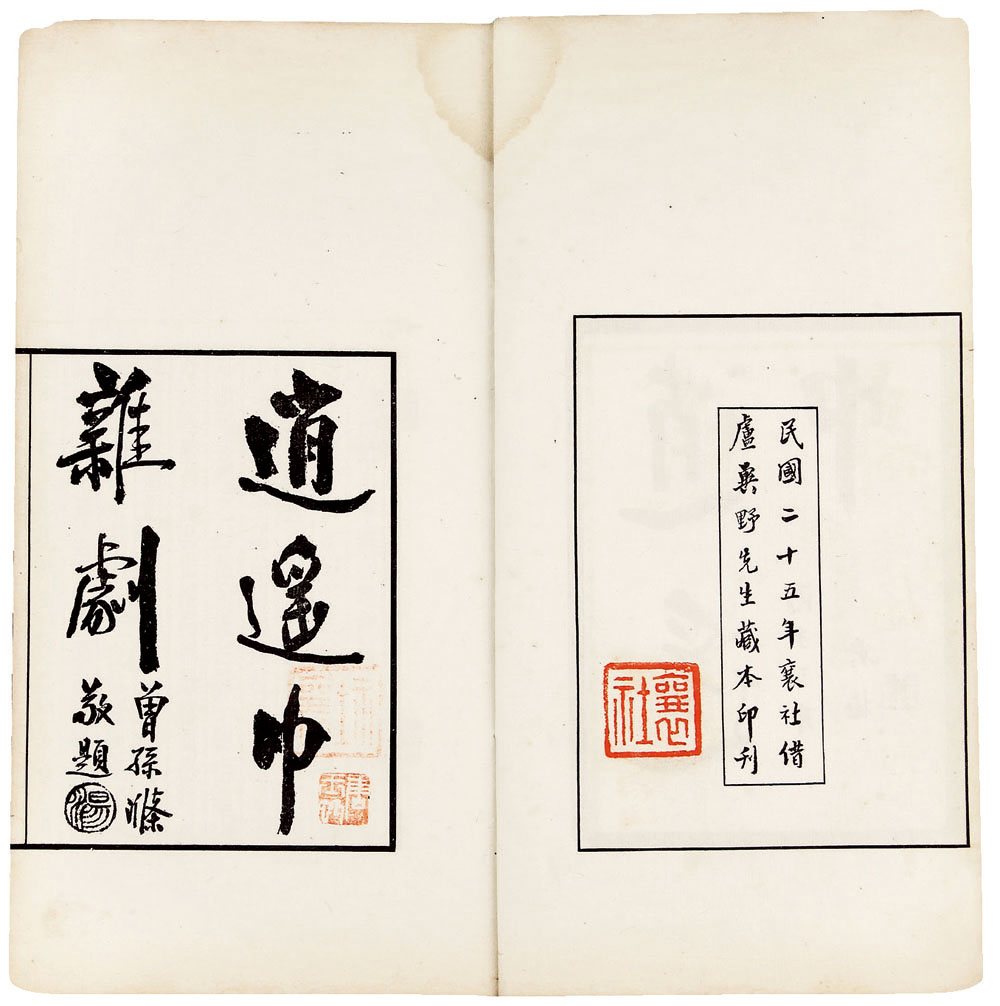 民國二十五年襄社借
盧冀野先生藏本印刊
襄社
逍遙巾
雜劇
曾孫滌
敬題
湯